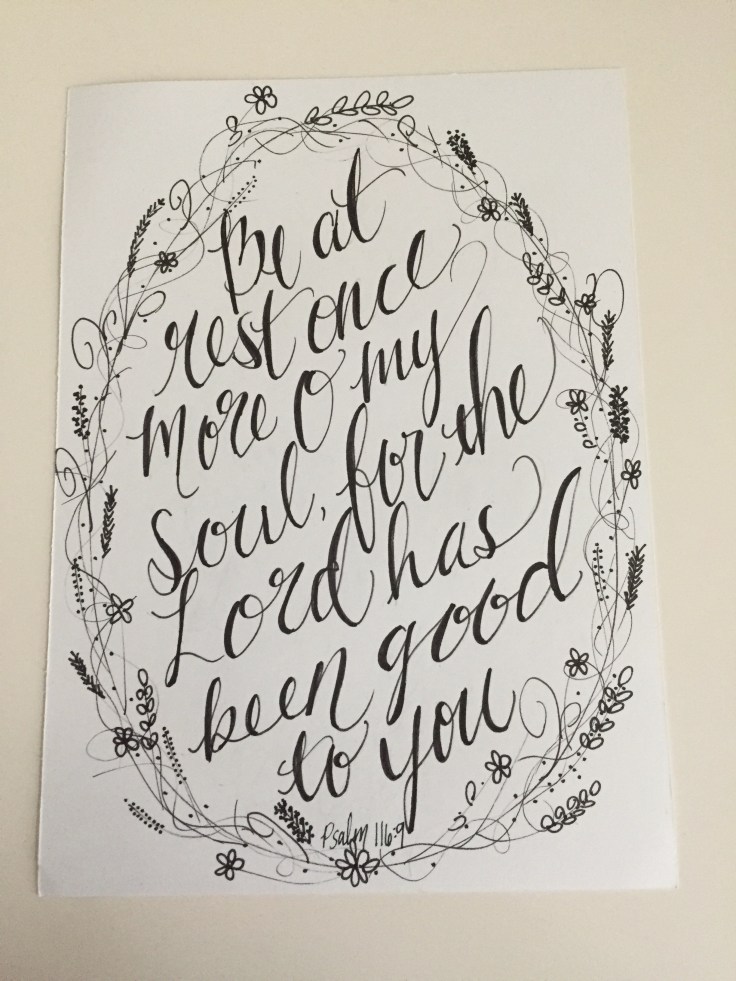 Be at
rest once
more O my
soul, for the
Lord has
been good
to you
Psalm 116:9